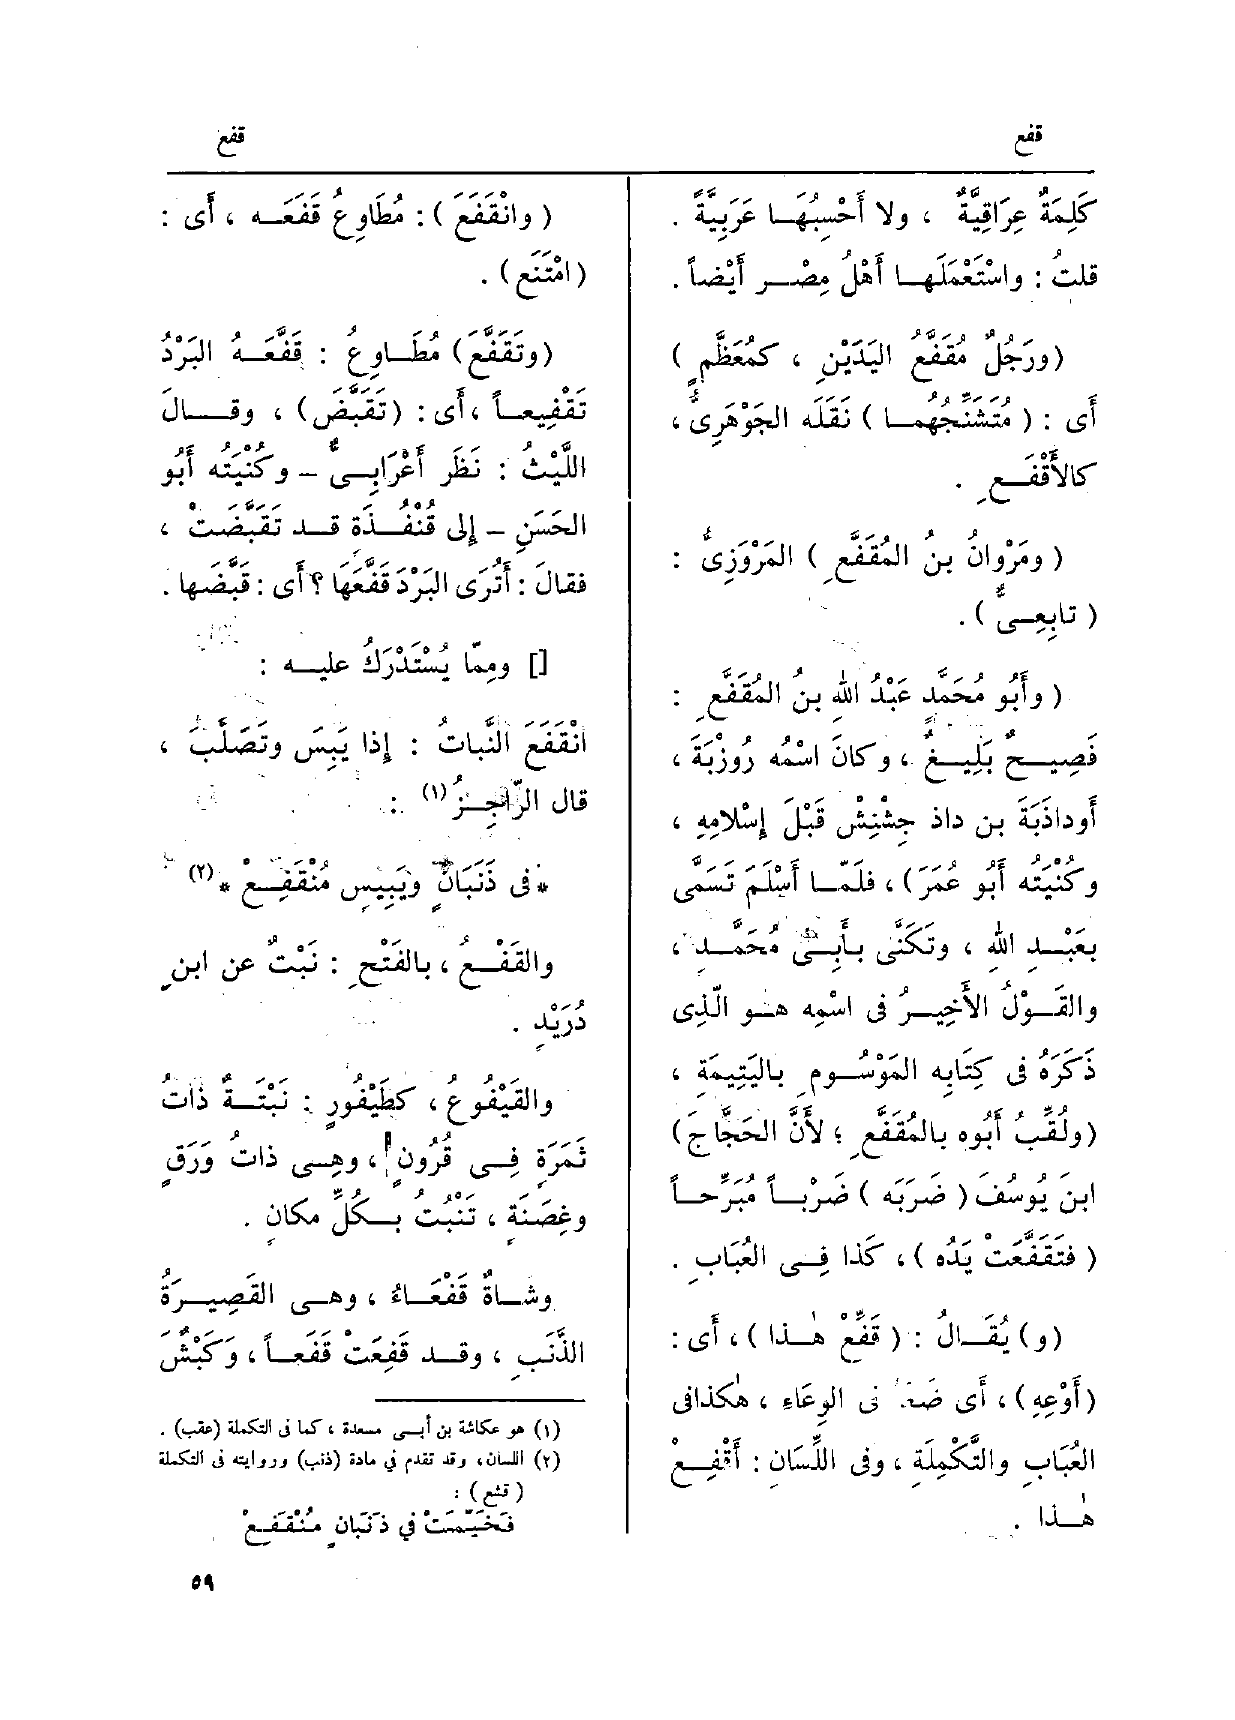 قفع
قفع
كَلِمَةٌ عِرَاقِيَّةٌ ، ولا أَحْسِبُهَا عَرَبِيَّةً .
قلتُ : واسْتَعْمَلَها أَهْلُ مِصْر أَيْضاً .
(ورَجُلٌ مُقَفَّعُ اليَدَيْنِ ، كمُعَظَّمٍ )
أَى : ( مُتَشَنِّجُهما ) نَقَلَه الجَوْهَرِىُّ ،
كالأَقْفَعِ .
( ومَرْوانُ بنُ المُقَفَّعِ ) المَرْوَزِىُّ :
( تابِعِىٌّ ) .
( وأَبُو مُحَمَّد عَبْدُ اللهِ بنُ المُقَفَّعِ :
فَصِيحٌ بَلِيغٌ ، وكانَ اسْمُه رُوزْبَةَ ،
أَوداذَبَةَ بن داذ جِشْنِشْ قَبْلَ إِسْلامِهِ ،
وكُنْيَتُه أَبُو عُمَرَ) ، فلمّا أَسْلَمَ تَسَمَّى
بعَبْدِ اللهِ ، وتَكَنَّى بأَبِى مُحَمَّد ،
والقَوْلُ الأَخِيرُ فى اسْمِه هو الَّذِى
ذَكَرَهُ فى كِتَابِه المَوْسُومِ بِاليَتِيمَةِ ،
(ولُقِّبَ أَبُوه بالمُقَفَّعِ ؛ لأَنَّ الحَجَّاجَ)
ابنَ يُوسُفَ ( ضَرَبَه ) ضَرْباً مُبَرِّحاً
( فتَقَفَّعَتْ يَدُه ) ، كَذا فِى العُبَابِ .
(و) يُقَالُ : ( قَفِّعْ هٰذا ) ، أَى :
(أَوْعِهِ) ، أَى ضَعْه فى الوِعَاءِ ، هٰكذا فى
العُبَابِ والتَّكْمِلَةِ ، وفى اللِّسَانِ : أَقْفِعْ
هٰذا .
( وانْقَفَعَ ) : مُطَاوِعُ قَفَعَه ، أَى :
(امْتَنَع) .
(وتَقَفَّع) مُطَاوِعُ : قَفَّعَهُ البَرْدُ
تَقْفِيعاً ، أَى : (تَقَبَّضَ) ، وقالَ
اللَّيْثُ : نَظَر أَعْرَابِىٌّ - وكُنْيَتُه أَبُو
الحَسَنِ - إِلى قُنْفُذَة قد تَقَبَّضَتْ ،
فقالَ : أَتُرَى البَرْدَ قَفَّعَها ؟ أَى : قَبَّضَها .
[] ومِمّا يُسْتَدْرَكُ عليه :
انْقَفَعَ النَّباتُ : إِذا يَبِسَ وتَصَلَّبَ ،
قال الرّاجِزُ (١) :
*فى ذَنَبَانٍ ويَبِيسٍ مُنْقَفِعْ *(٢)
والقَفْعُ ، بالفَتْحِ : نَبْتٌ عن ابنِ
دُرَيْدٍ .
والقَيْفُوع ، كطَيْفُورٍ : نَبْتَةٌ ذاتُ
ثَمَرَةٍ فى قُرُونٍ ، وهِى ذاتُ وَرَقٍ
وغِصَنَةٍ ، تَنْبُتُ بكُلِّ مَكانٍ .
وشاةٌ قَفْعَاءُ ، وهى القَصِيرَةُ
الذَّنَبِ ، وقد قَفِعَتْ قَفَعاً ، وكَبْشٌ
(١) هو عكاشة بن أبى مسعدة ، كما فى التكملة (عقب) .
(٢) اللسان، وقد تقدم فى مادة (ذنب) وروايته فى التكملة
( قثع ) :
فَخَيَّمَتْ فى ذَنَبانٍ مُنْقَفِعْ
٥٩